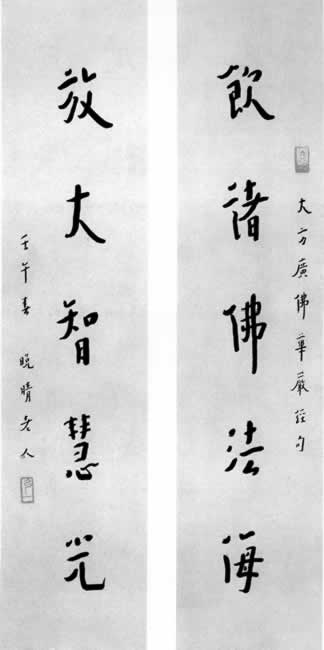 大方廣佛華嚴經句
飲諸佛法海
放大智慧光
壬午春 晚晴老人